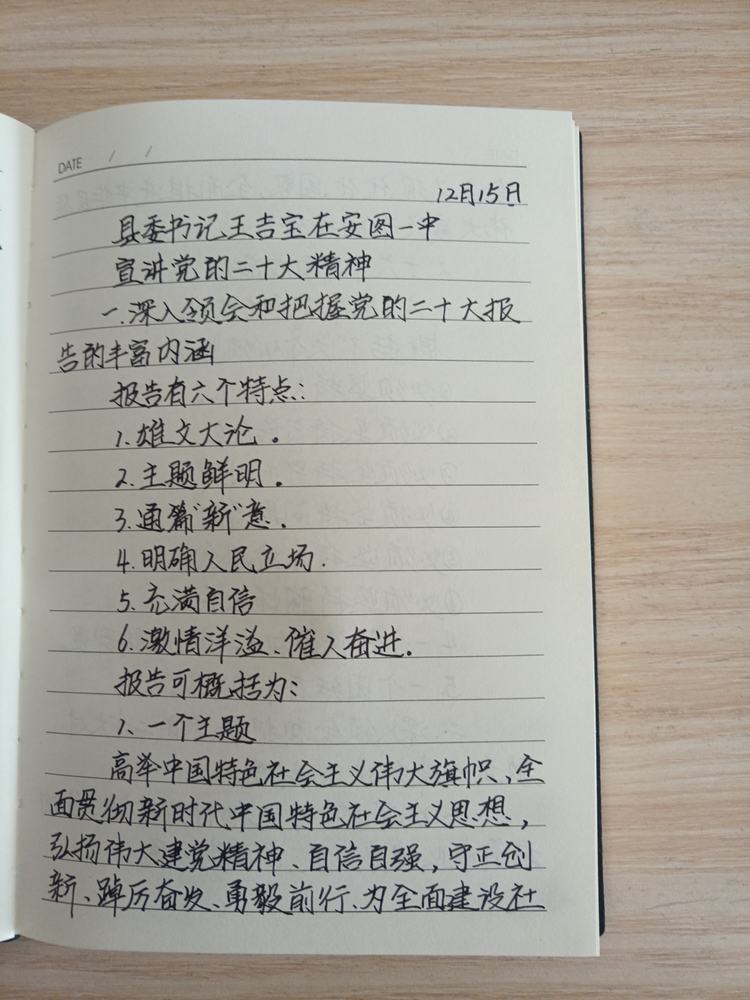 DATE / /
12月15日
县委书记王吉宝在安图一中
宣讲党的二十大精神
一.深入领会和把握党的二十大报
告的丰富内涵
报告有六个特点:
1.雄文大论。
2.主题鲜明。
3.通篇"新"意.
4.明确人民立场.
5.充满自信
6.激情洋溢、催人奋进.
报告可概括为:
1、一个主题
高举中国特色社会主义伟大旗帜,全
面贯彻新时代中国特色社会主义思想,
弘扬伟大建党精神、自信自强,守正创
新、踔厉奋发、勇毅前行、为全面建设社